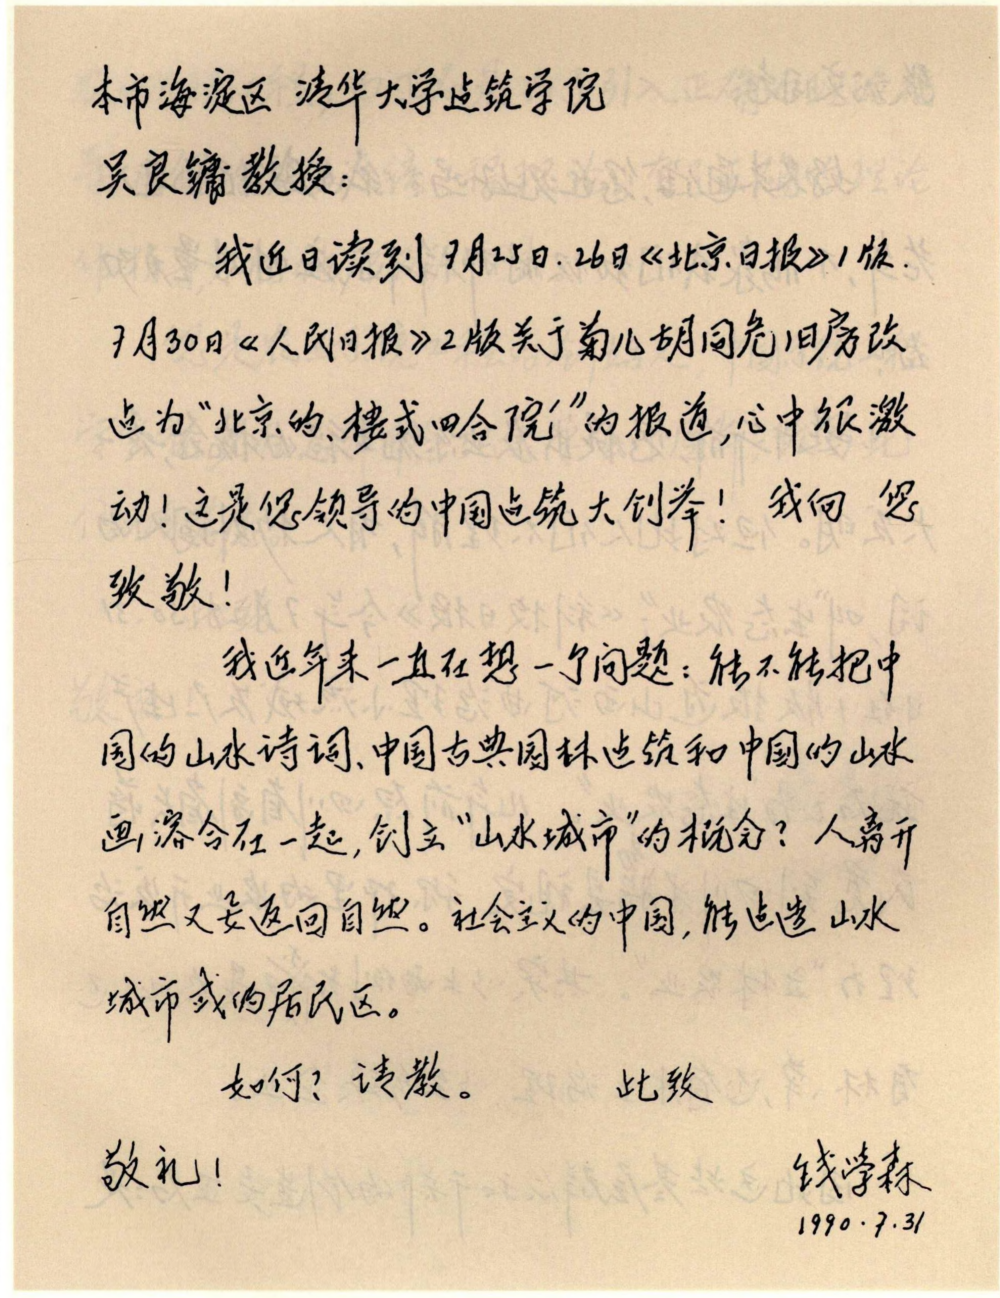 本市海淀区 清华大学建筑学院
吴良镛教授：
我近日读到7月25日.26日《北京日报》1版.
7月30日《人民日报》2版关于菊儿胡同危旧房改
造为“北京的、楼式四合院”的报道,心中很激
动！这是您领导的中国建筑大创举！ 我向 您
致敬！
我近年来一直在想一个问题：能不能把中
国的山水诗词、中国古典园林建筑和中国的山水
画溶合在一起,创立“山水城市”的概念？人离开
自然又要返回自然。社会主义的中国,能建造山水
城市式的居民区。
如何？请教。 此致
敬礼！
钱学森
1990.7.31